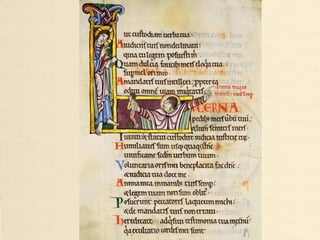 ut custodiam verba tua
A iudiciis tuis non declinavi:
quia tu legem posuisti
Quam dulcia faucibus meis eloquia tua:
super mel ori meo
A mandatis tuis intellexi: propterea
odivi omnem viam iniquitatis
L CERNA
pedibus meis
semitis meis
Iuravi et statui custodire iudicia iustitie tue
Humiliatus sum usquequaque
vivifica me secundum verbum tuum
Voluntaria oris mei beneplacita fac
et iudicia tua doce me
Anima mea in manibus
et legem tuam non sum
Posuerunt peccatores laqueum michi:
et de mandatis tuis non erravi
Hereditate testimonia tua
quia exultatio cordis mei sunt